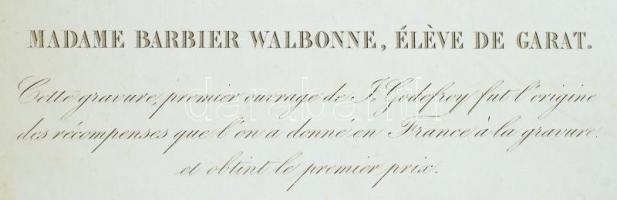 MADAME BARBIER WALBONNE, ÉLÈVE DE GARAT.
Cette gravure, premier ouvrage de J. Godefroy fut l'origine
des récompenses que l'on a donné en France à la gravure.
et obtint le premier prix.